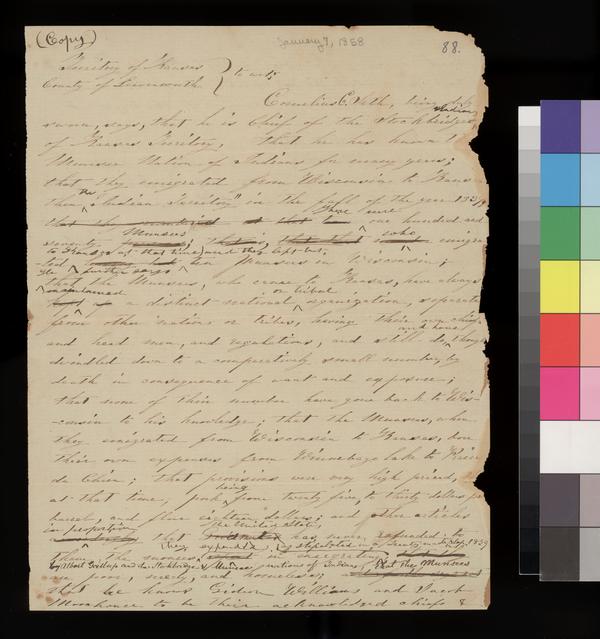 (Copy)
January 9, 1858
88.
Territory of Kansas
County of Leavenworth } to wit;
Cornelius C. being
Indian
sworn, says, that he is Chief of the Stockbridges,
of Kansas Territory, that he has known
Munsee Nation of Indians for many years;
that they emigrated from Wisconsin to Kansas
then the "Indian Territory" in the fall of the year
there were
that one hundred and
Munsees who
seventy ; that
to Kansas at that time, and they left but
ten Munsees in Wisconsin;
He further says
that the Munsees, who came to Kansas, have always
maintained or tribal
a distinct national organization, separate
from other nations or tribes, having their own chiefs
and head men, and regulations, and still do, though
dwindled down to a comparatively small number, by
death in consequence of want and exposure;
that none of their number have gone back to Wis-
-consin to his knowledge; that the Munsees, when
they emigrated from Wisconsin to Kansas, bore
their own expenses from Winnebago lake to Prairie
du Chien; that provisions were very high priced,
being
at that time; pork from twenty five, to thirty dollars per
barrel, and flour eighteen dollars; and other articles
in proportion the United States,
that has never refunded to
they expended, as stipulated in a treaty
them, the moneys in emigrating
by & Munsee nations of Indians, that the Munsees
are poor, needy, and homeless;
that he knows Gideon Williams and Jacob
to be their acknowledged chiefs &